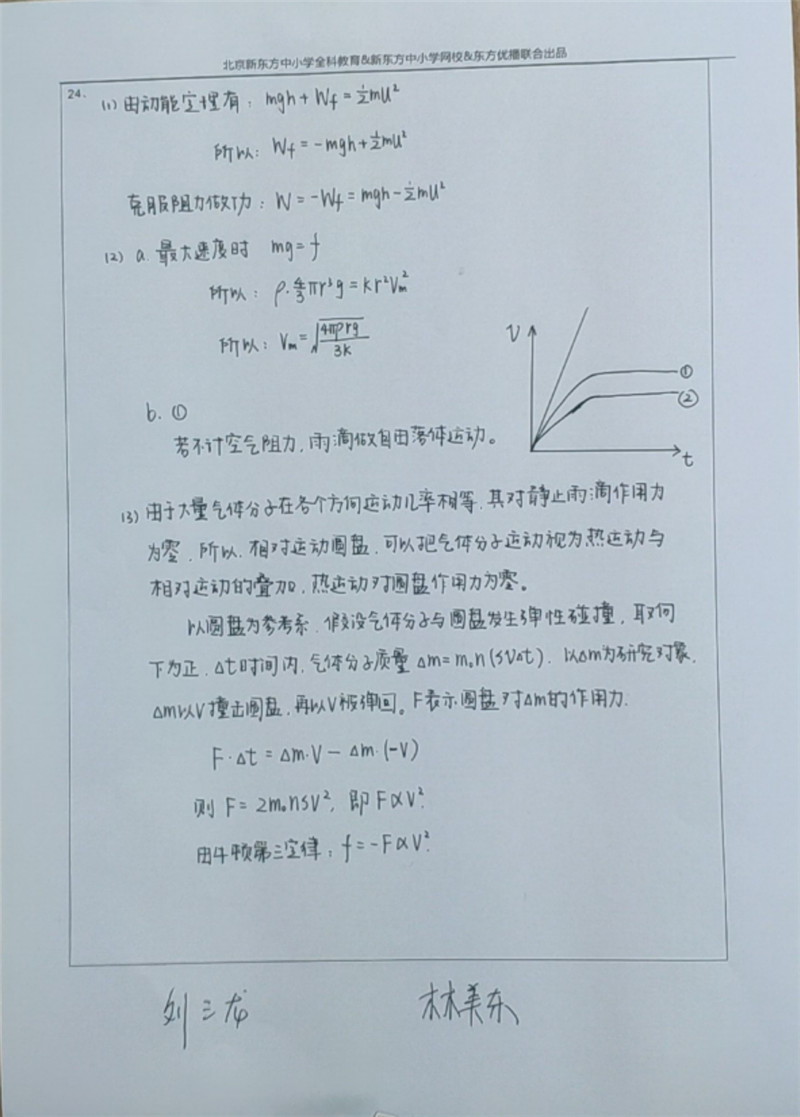 北京新东方中小学全科教育&新东方中小学网校&东方优播联合出品
24.
(1) 由动能定理有：mgh + W_f = ½mU²
所以：W_f = -mgh + ½mU²
克服阻力做功：W = -W_f = mgh - ½mU²
(2) a. 最大速度时 mg = f
所以：ρ·4/3πr³g = kr²V_m²
所以：V_m = √(4πρrg/3k)
V
①
②
t
b. ①
若不计空气阻力，雨滴做自由落体运动。
(3) 由于大量气体分子在各个方向运动几率相等，其对静止雨滴作用力
为零，所以，相对运动圆盘，可以把气体分子运动视为热运动与
相对运动的叠加，热运动对圆盘作用力为零。
以圆盘为参考系，假设气体分子与圆盘发生弹性碰撞，取向
下为正，Δt时间内，气体分子质量 Δm = m₀n(SVΔt)，以Δm为研究对象，
Δm以V撞击圆盘，再以V被弹回。F表示圆盘对Δm的作用力.
F·Δt = Δm·V - Δm·(-V)
则 F = 2m₀nSV²，即 F∝V².
由牛顿第三定律：f = -F∝V².
刘三龙 林美东